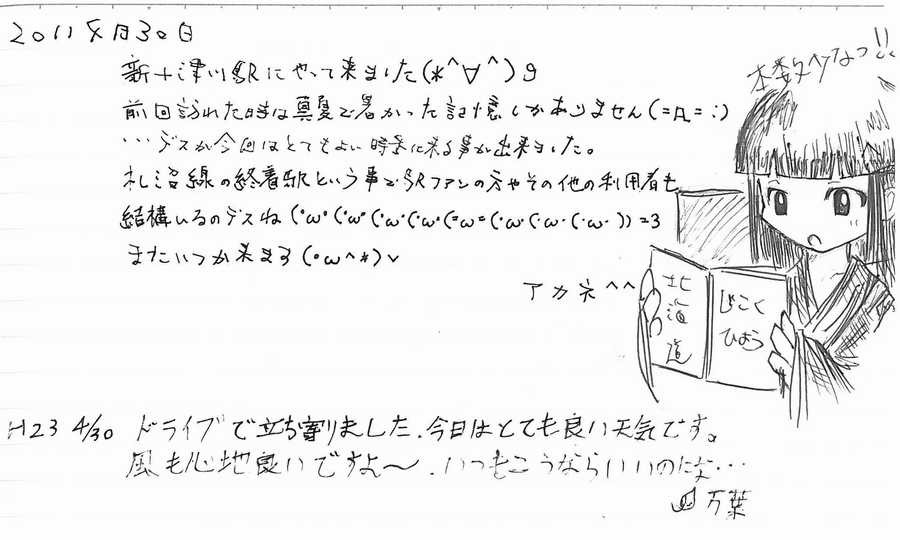 2011年4月30日
新十津川駅にやって来ました(*^∀^)9
前回訪れた時は真夏で暑かった記憶しかありません(=Д=;)
…デスが今回はとてもよい時季に来る事が出来ました。
札沼線の終着駅という事で駅ファンの方やその他の利用者も
結構いるのデスね(・ω・(・ω・(・ω・(・ω・(=ω=(・ω・(・ω・(・ω・))=3
またいつか来まする(・ω^*)v
アカネ^^
本数少なっ!!
北海道
じこく
ひょう
H23 4/30 ドライブで立ち寄りました。今日はとても良い天気です。
風も心地良いですよ〜。いつもこうならいいのにな…
万葉